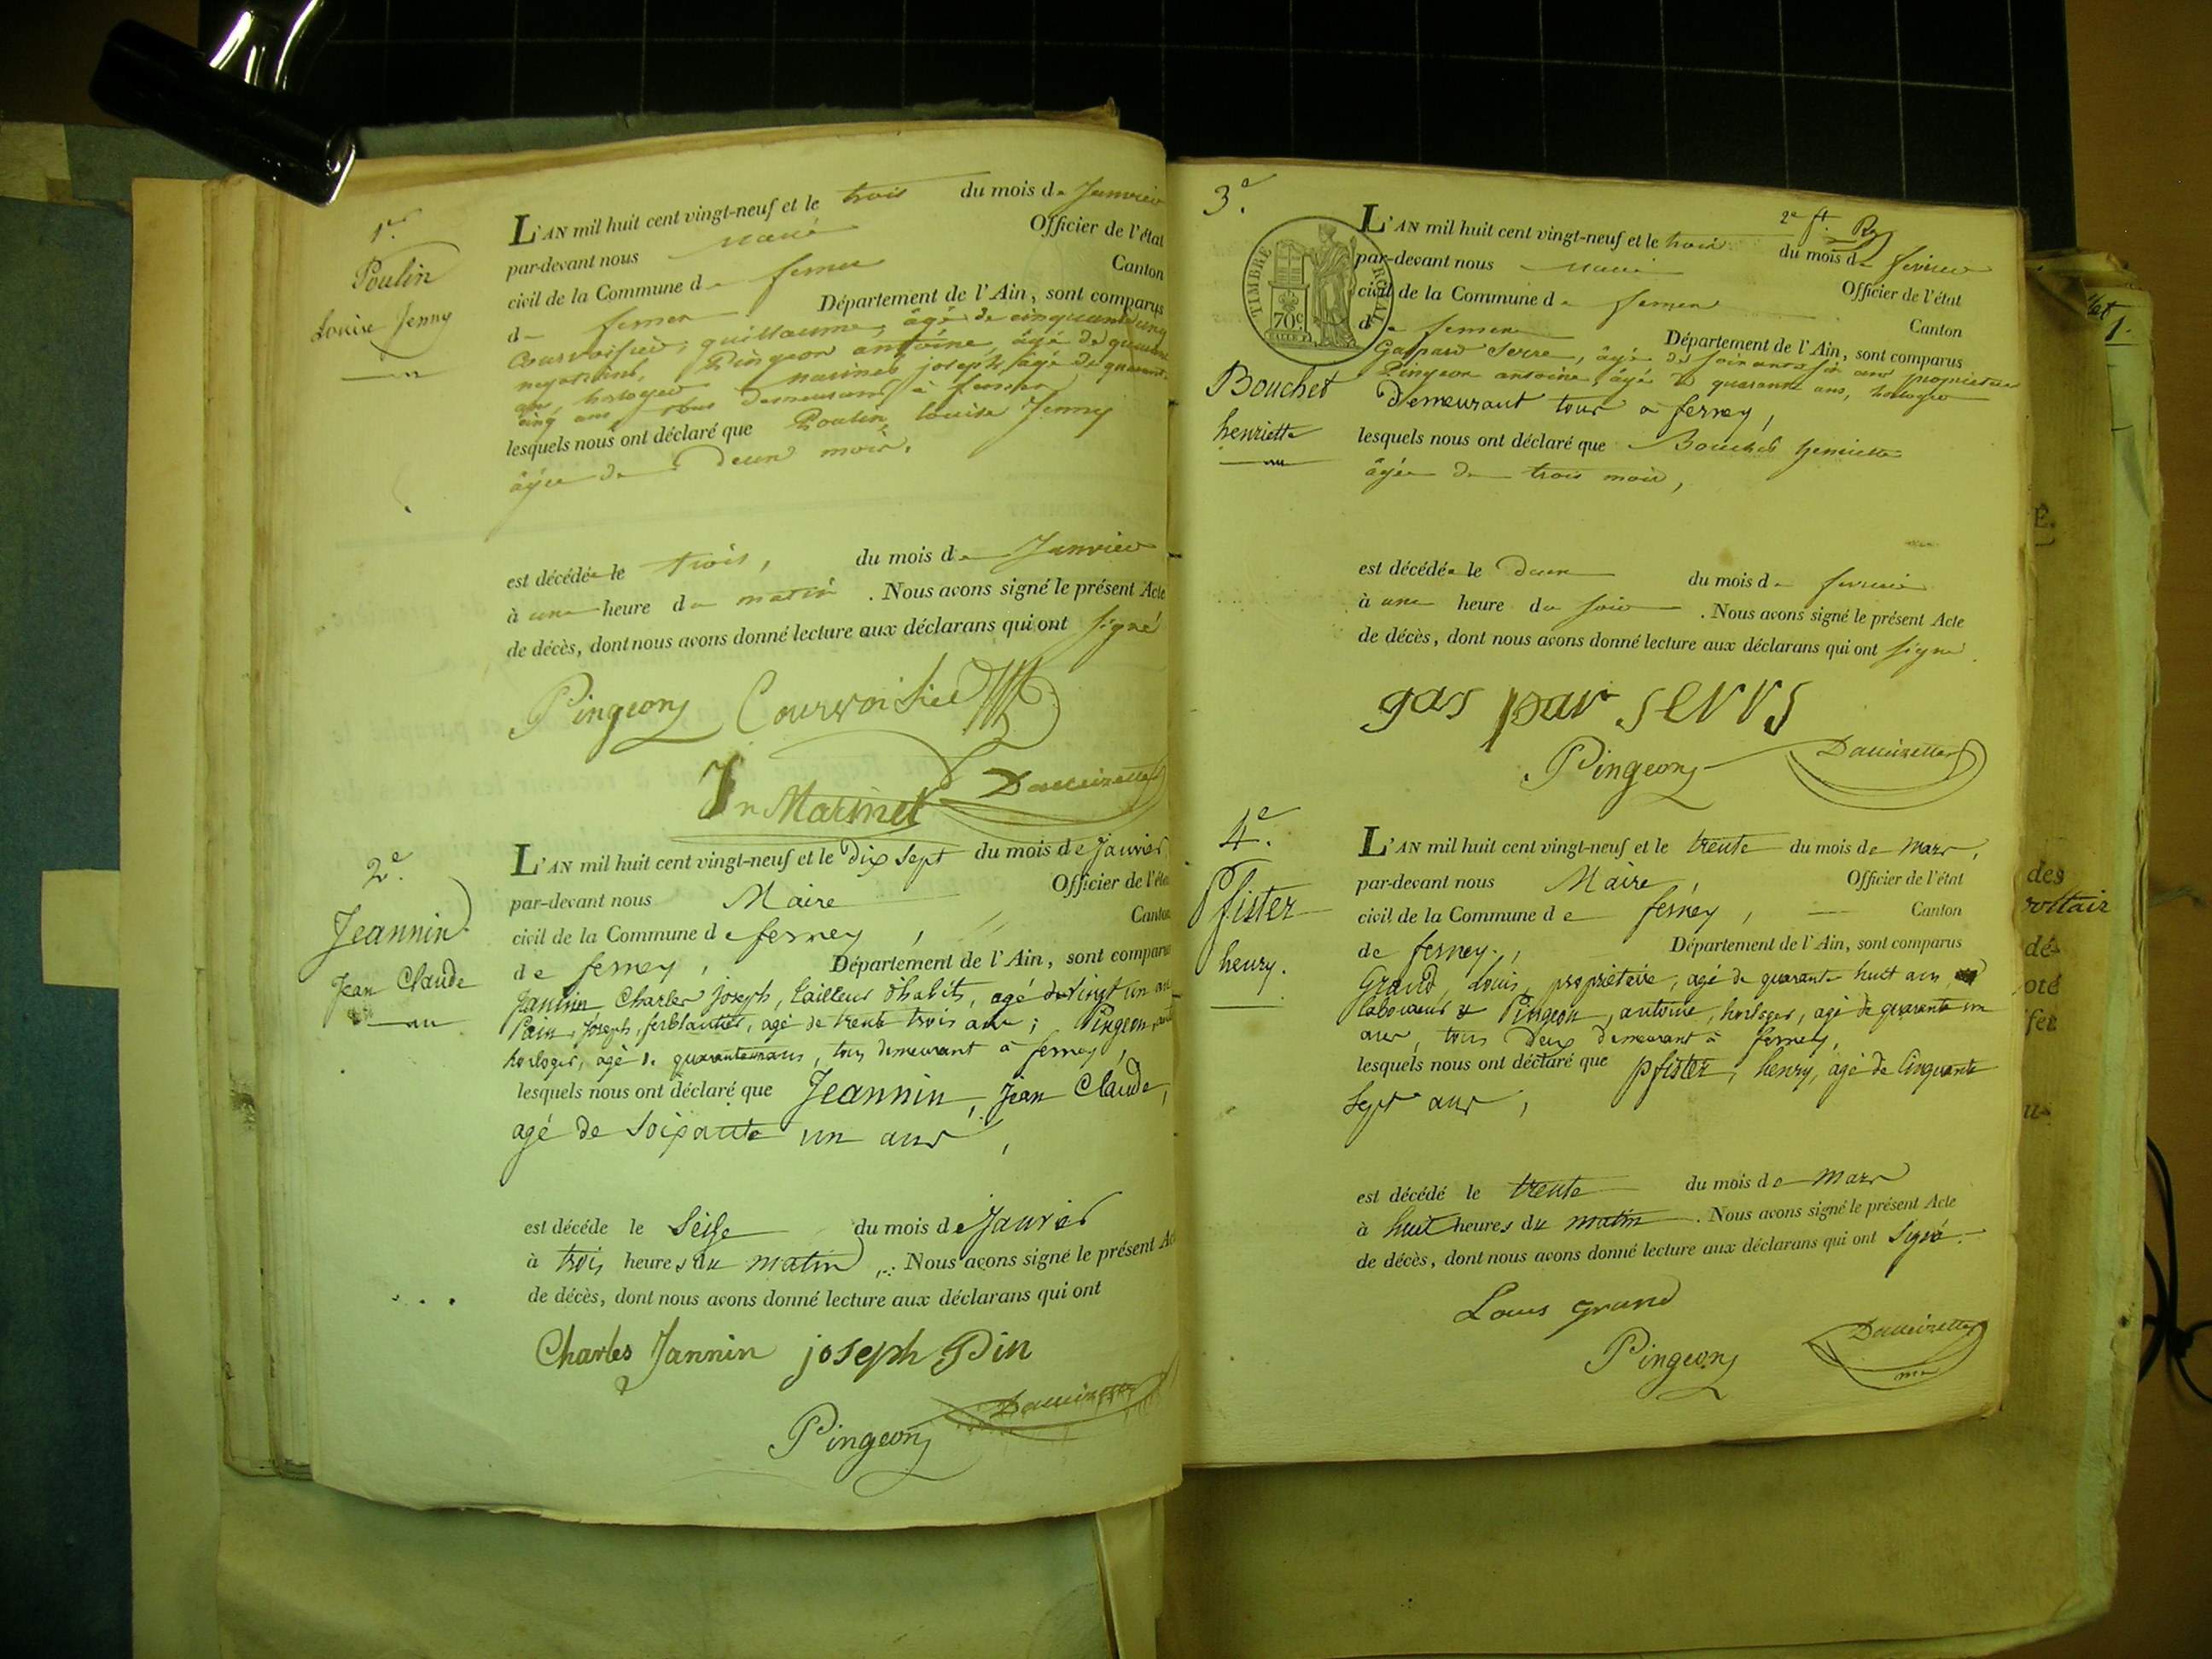 1er.
Poulin
Louise Jenny
L'AN mil huit cent vingt-neuf et le trois du mois de Janvier
par-devant nous maire Officier de l'état
civil de la Commune de ferney Canton
de ferney Département de l'Ain, sont comparus
Courvoisier, guillaume, âgé de cinquante cinq
negotiant, Pingeon antoine, âgé de quarante
an, horloger Marinet joseph, âgé de quarante
cinq ans tous demeurant à ferney
lesquels nous ont déclaré que Poulin, louise Jenny
âgée de deux mois.
est décédée le trois, du mois de Janvier
à une heure du matin . Nous avons signé le présent Acte
de décès, dont nous avons donné lecture aux déclarans qui ont signé
Pingeon Courvoisier
Jn Marinet
2e.
Jeannin
Jean Claude
L'AN mil huit cent vingt-neuf et le Dix sept du mois de Janvier
par-devant nous Maire Officier de l'état
civil de la Commune de ferney, Canton
de ferney, Département de l'Ain, sont comparus
Jannin Charles joseph, tailleur d'habits, agé de vingt un an
Pain, joseph, ferblantier, agé de trente trois ans; Pingeon, ant
horloger, agé de quarante un ans, tous demeurant à ferney,
lesquels nous ont déclaré que Jeannin, Jean Claude,
agé de Soixante un ans,
est décéde le Seise du mois de Janvier
à trois heures du matin . Nous avons signé le présent Acte
de décès, dont nous avons donné lecture aux déclarans qui ont
Charles Jannin joseph Pin
Pingeon
3e.
TIMBRE ROYAL
70c
2e ft.
Bouchet
henriette
L'AN mil huit cent vingt-neuf et le trois du mois de fevrier
par-devant nous maire Officier de l'état
civil de la Commune de ferney Canton
de ferney Département de l'Ain, sont comparus
Gaspard Serre, âgé de soixante six ans propriétaire
Pingeon antoine, âgé de quarante ans, horloger
Demeurant tous a ferney,
lesquels nous ont déclaré que Bouchet henriette
âgée de trois mois,
est décédée le deux du mois de fevrier
à une heure du soir . Nous avons signé le présent Acte
de décès, dont nous avons donné lecture aux déclarans qui ont signé.
gas par serrs
Pingeon
4e.
Pfister
henry.
L'AN mil huit cent vingt-neuf et le trente du mois de mars,
par-devant nous Maire, Officier de l'état
civil de la Commune de ferney, Canton
de ferney, Département de l'Ain, sont comparus
Grand, Louis, propriétaire, agé de quarante huit ans,
laboureur & Pingeon, antoine, horloger, agé de quarante un
ans, tous Deux demeurant à ferney,
lesquels nous ont déclaré que pfister, henry, agé de Cinquante
Sept ans,
est décédé le trente du mois de mars
à huit heures du matin . Nous avons signé le présent Acte
de décès, dont nous avons donné lecture aux déclarans qui ont Signé.
Louis grand
Pingeon